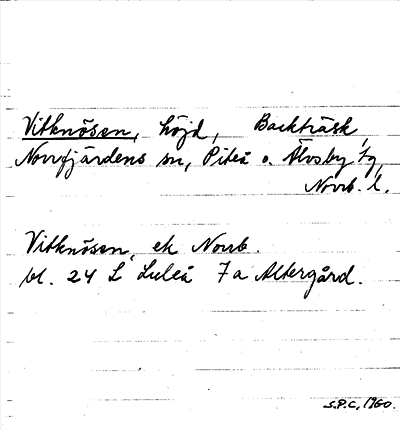 Vitknösen, höjd, Backträsk,
Norrfjärdens sn, Piteå o. Älvsby tg,
Norrb. l.
Vitknösen, ek Norrb.
bl. 24 L Luleå 7a Altergård.
S.P.C, 1960.